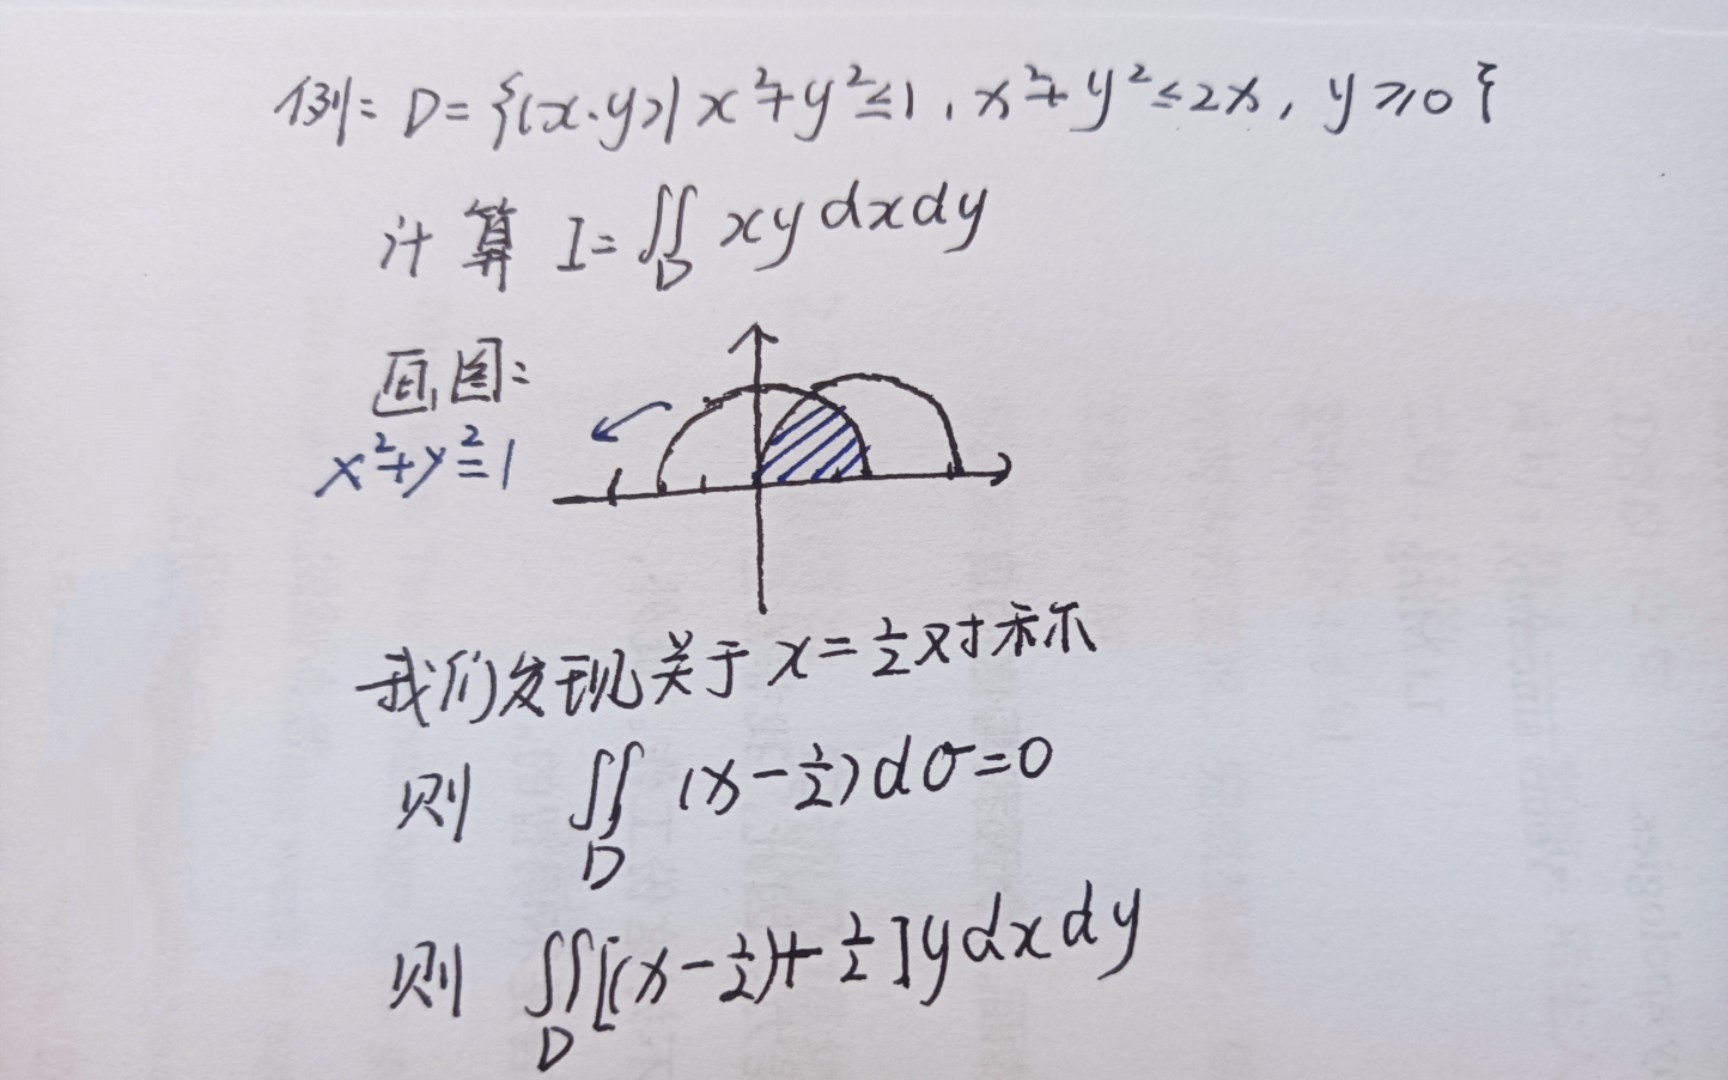 例: D={(x.y)| x²+y²≤1, x²+y²≤2x, y≥0}
计算 I=∬_D xydxdy
画图:
x²+y²=1
我们发现关于 x=1/2 对称
则 ∬_D (x-1/2)dσ=0
则 ∬_D [(x-1/2)+1/2]ydxdy